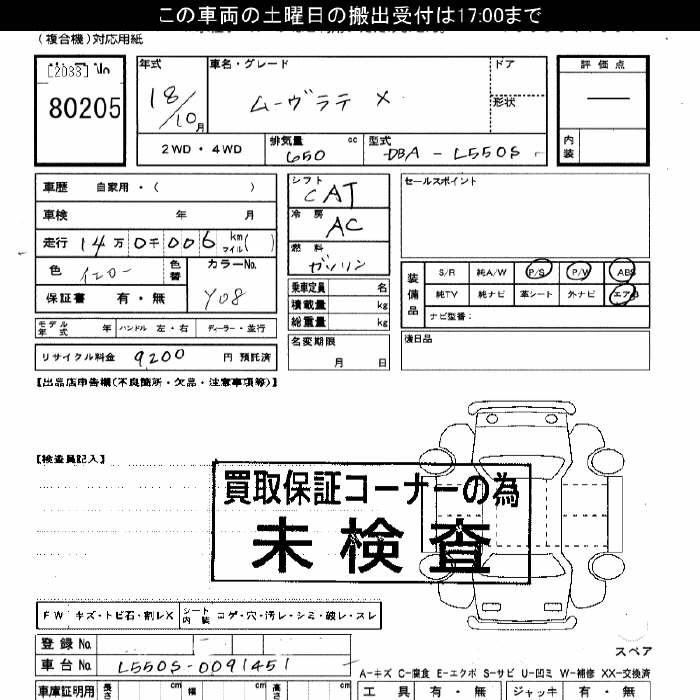 この車両の土曜日の搬出受付は17:00まで
(複合機)対応用紙
[2033] No
80205
年式 車名・グレード ドア
18/10月 ムーヴラテ X 形状
評価点
内装
2WD・4WD 排気量 650 cc 型式 DBA-L550S
車歴 自家用・( )
車検 年 月
走行 14万0千006 km マイル( )
色 イエロー 色替 カラーNo. Y08
保証書 有・無
モデル年式 年 ハンドル 左・右 ディーラー・並行
リサイクル料金 9200 円 預託済
シフト CAT
冷房 AC
燃料 ガソリン
乗車定員 名
積載量 kg
総重量 kg
名変期限 月 日
セールスポイント
装備品
S/R 純A/W P/S P/W ABS
純TV 純ナビ 革シート 外ナビ エアB
ナビ型番:
後日品
【出品店申告欄(不良箇所・欠品・注意事項等)】
【検査員記入】
買取保証コーナーの為
未検査
FW キズ・トビ石・割レX シート内装 コゲ・穴・汚レ・シミ・破レ・スレ
登録 No.
車台 No. L550S-0091451
スペア
A-キズ C-腐食 E-エクボ S-サビ U-凹ミ W-補修 XX-交換済
車庫証明用 長さ cm 幅 cm 高さ cm
工具 有・無 ジャッキ 有・無